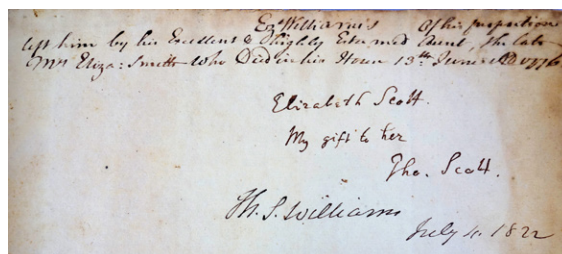 Ez Williams's Of his proportion
left him by his Excellent & highly Esteemed Aunt, the late
Mrs Eliza: Smith who Died in his House 13th June
Elizabeth Scott.
My gift to her
Tho. Scott.
Th. S. Williams
July 4. 1822